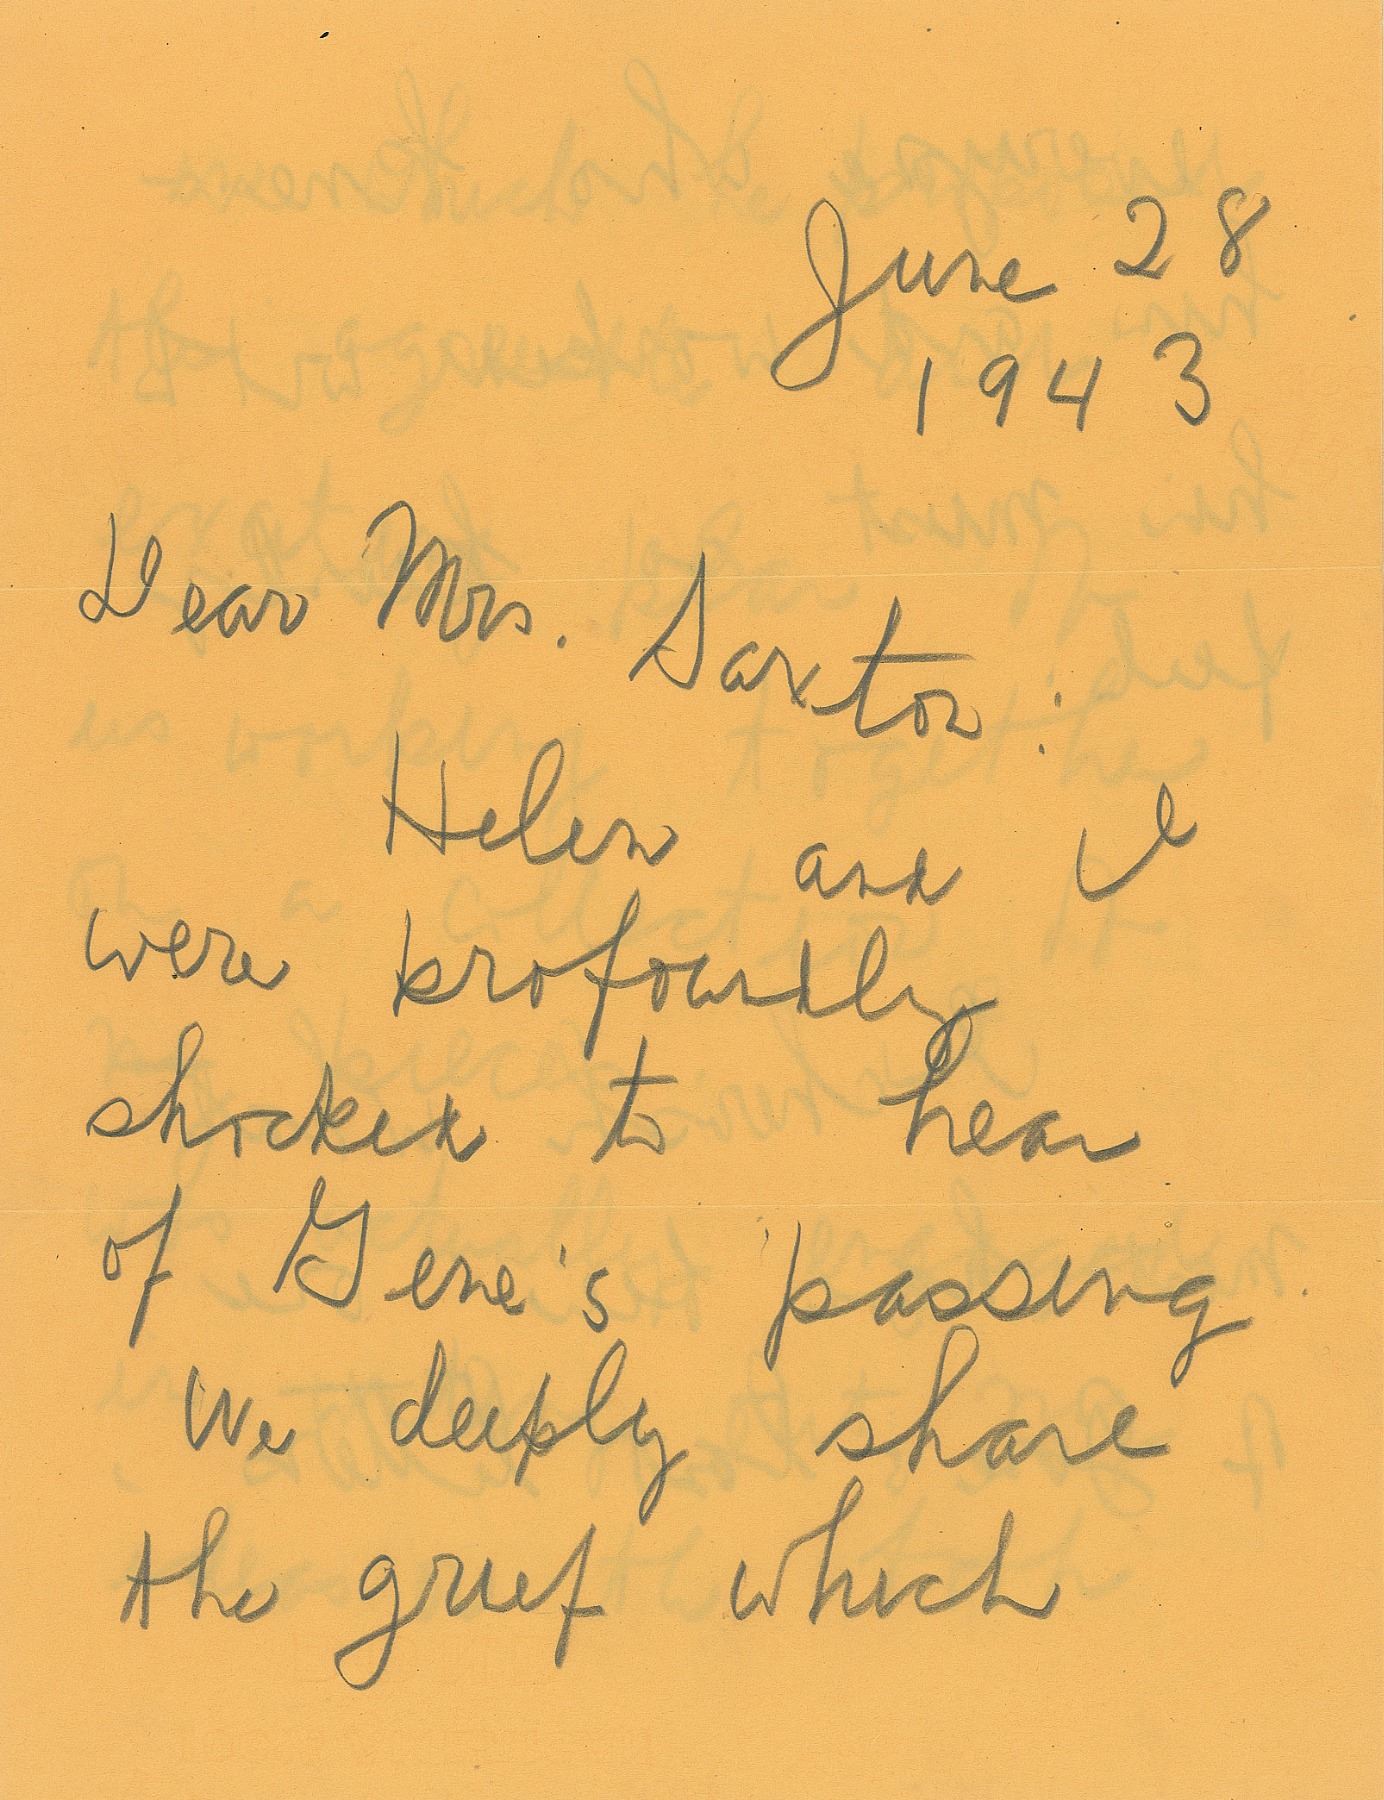 June 28
1943
Dear Mrs. Saxton:
Helen and I
were profoundly
shocked to hear
of Gene's passing
We deeply share
the grief which